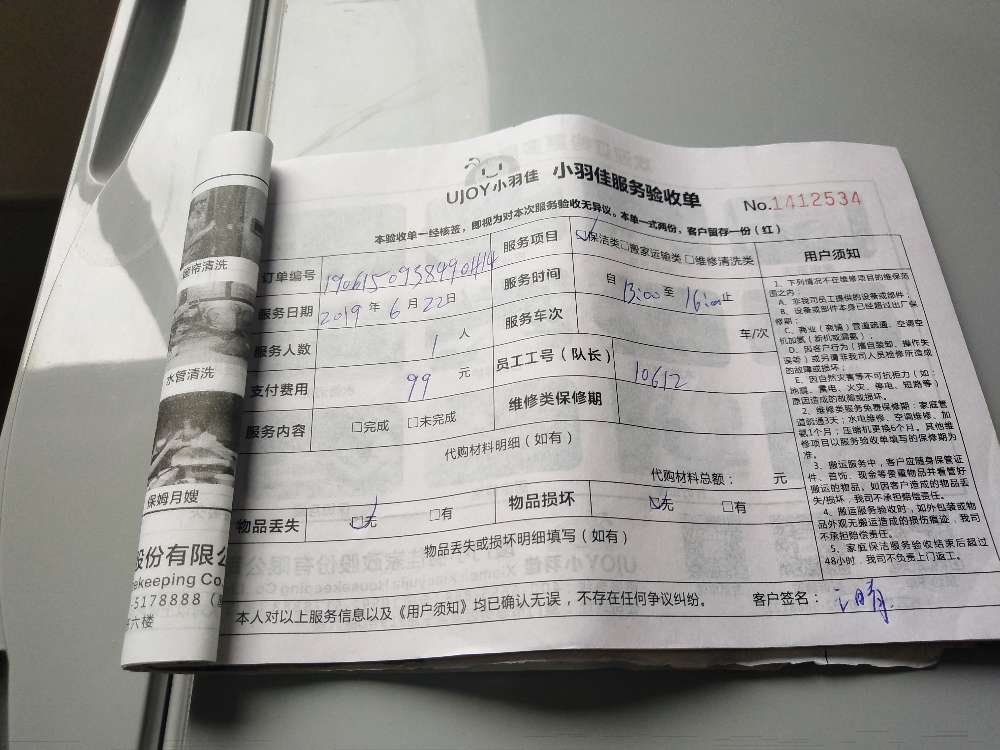 UJOY小羽佳 小羽佳服务验收单
No.1412534
本验收单一经核签，即视为对本次服务验收无异议。本单一式两份，客户留存一份（红）
订单编号
服务项目 ☑保洁类□搬家运输类 □维修清洗类
服务日期 2019 年 6 月 22 日
服务时间 自 13:00 至 16:00 止
服务人数 1 人
服务车次 车/次
支付费用 99 元
员工工号（队长） 10612
服务内容 □完成 □未完成
维修类保修期
代购材料明细（如有）
代购材料总额： 元
物品丢失 ☑无 □有
物品损坏 ☑无 □有
物品丢失或损坏明细填写（如有）
本人对以上服务信息以及《用户须知》均已确认无误，不存在任何争议纠纷。 客户签名：
用户须知
1、下列情况不在维修项目的维保范
围之内：
A、非我司员工提供的设备或部件；
B、设备或部件本身已经超过出厂保
修期；
C、商业（商铺）管道疏通、空调空
机加氟（新机或漏氟）
D、因客户行为（擅自装卸、操作失
误等）或另请非我司人员检修所造成
的故障或损坏；
E、因自然灾害等不可抗拒力（如：
地震、雷电、火灾、停电、短路等）
原因造成的故障或损坏。
2、维修类服务免费保修期：家庭管
道疏通3天；水电维修、空调维修、加
氟1个月；压缩机更换6个月。其他维
修项目以服务验收单填写的保修期为
准。
3、搬运服务中，客户应随身保管证
件、首饰、现金等贵重物品并看管好
搬运的物品。如因客户造成的物品丢
失/损坏，我司不承担赔偿责任。
4、搬运服务验收时，如外包装或物
品外观无搬运造成的损伤痕迹，我司
不承担赔偿责任。
5、家庭保洁服务验收结束后超过
48小时，我司不负责上门返工。
帘清洗
水管清洗
保姆月嫂
股份有限公
ekeeping Co.
-5178888
六楼